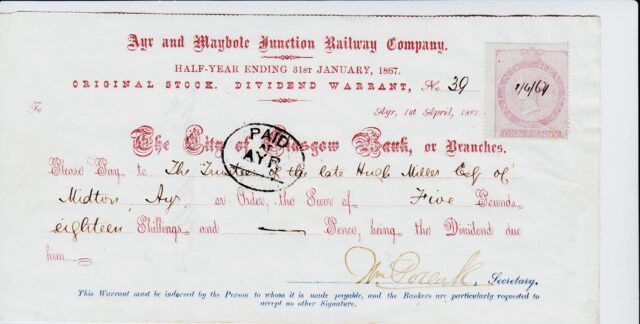 Ayr and Maybole Junction Railway Company.
HALF-YEAR ENDING 31ST JANUARY, 1867.
ORIGINAL STOCK. DIVIDEND WARRANT, No. 39
To Ayr, 1st April, 1867.
The City of Glasgow Bank, or Branches.
Please Pay to The Trustees of the late Hugh Miller Esq of
Midton Ayr or Order, the Sum of Five Pounds
eighteen Shillings and — Pence, being the Dividend due
him
Wm Secretary.
This Warrant must be indorsed by the Person to whom it is made payable, and the Bankers are particularly requested to
accept no other Signature.
PAID
AT
AYR
INLAND REVENUE
ONE PENNY